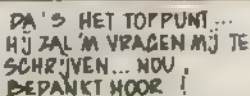 DA'S HET TOPPUNT...
HIJ ZAL 'M VRAGEN MIJ TE
SCHRIJVEN... NOU,
BEDANKT HOOR!